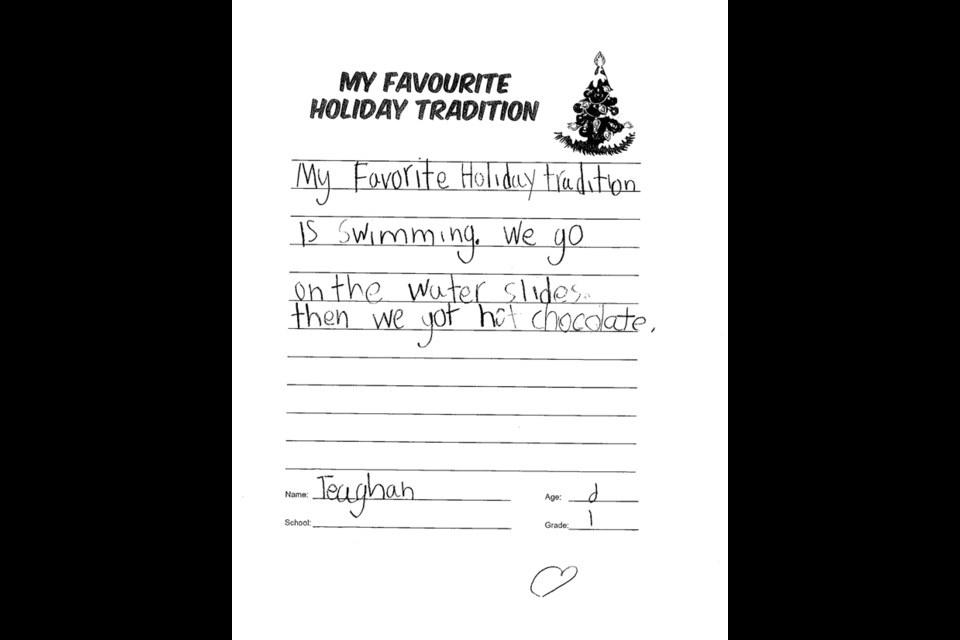 MY FAVOURITE
HOLIDAY TRADITION
My Favorite Holiday tradition
IS Swimming. We go
on the water slides.
then we got hot chocolate.
Name: Teaghan
Age:
School:
Grade: 1